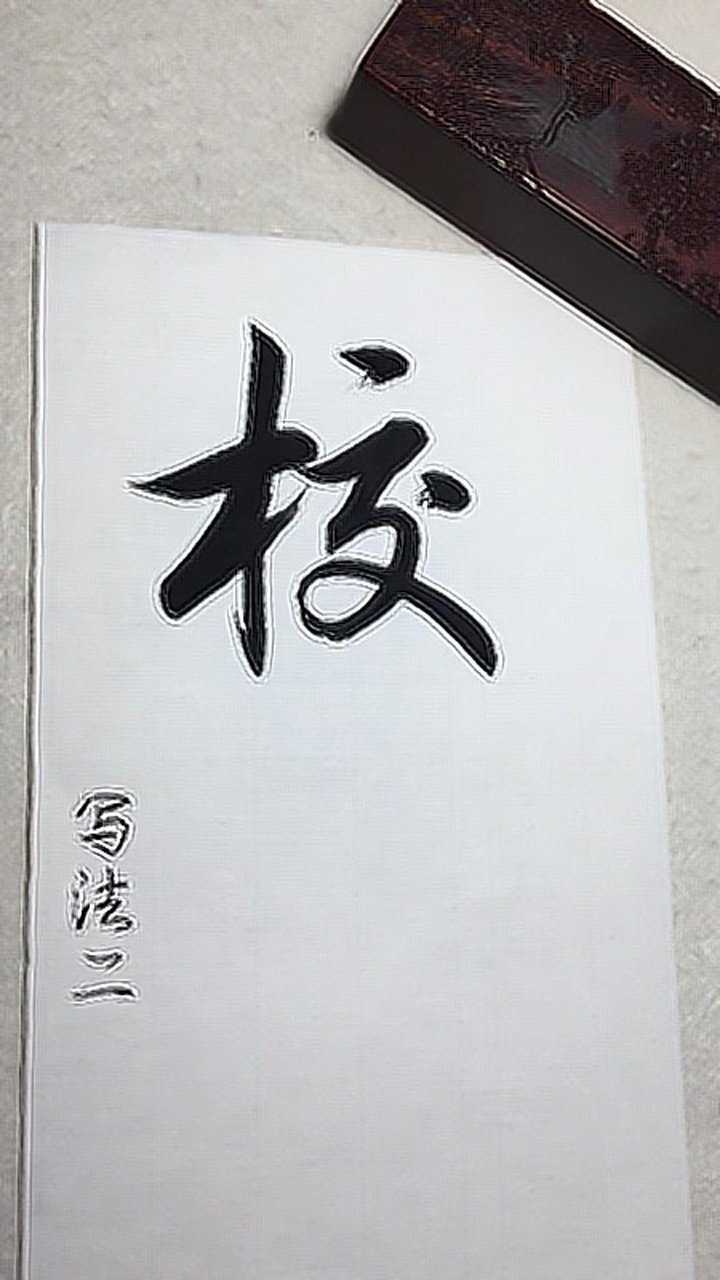 校
写法二